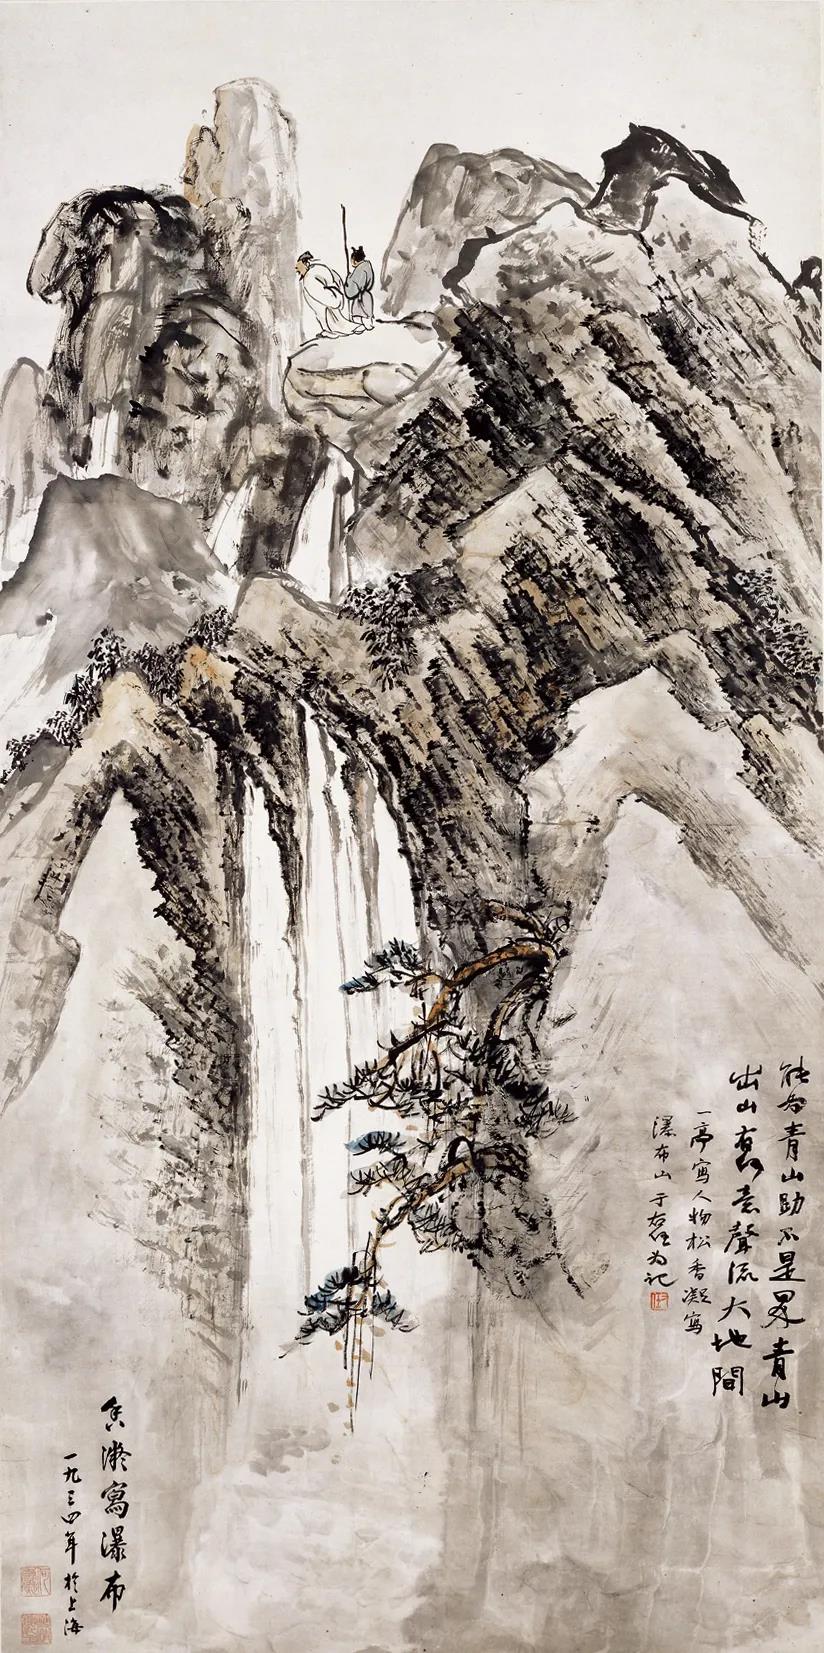 能為青山助不是界青山
出山有意聲流大地間
一亭寫人物松香凝寫
瀑布山于右任为記
香凝寫瀑布
一九三四年於上海